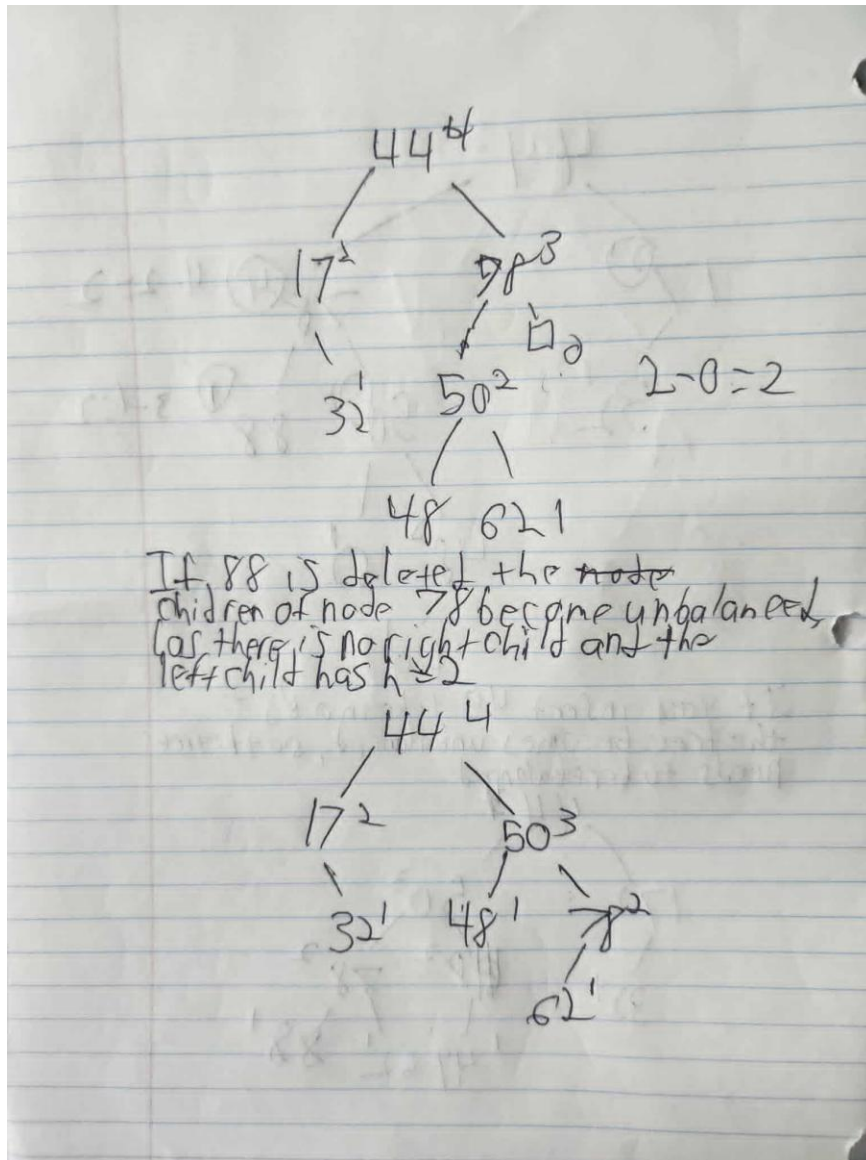 44 4
17 2 78 3
0
32 1 50 2 2-0=2
48 62 1
If 88 is deleted the node
children of node 78 become unbalanced,
as there is no right child and the
left child has h = 2
44 4
17 2 50 3
32 1 48 1 78 2
62 1